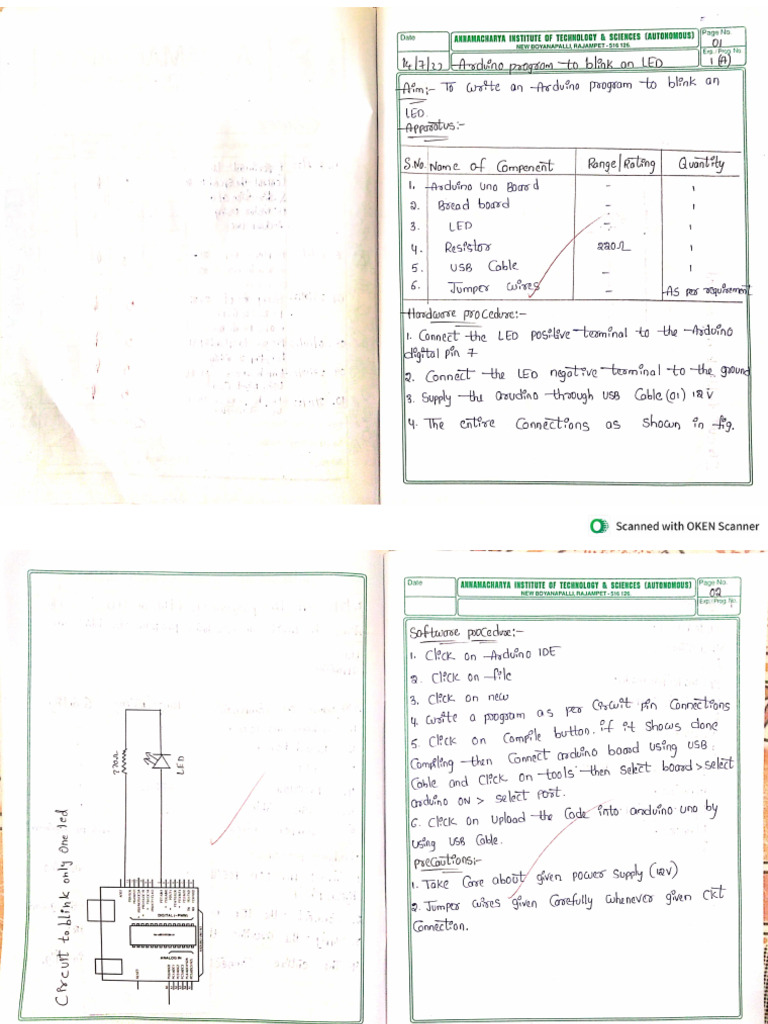 Date
ANNAMACHARYA INSTITUTE OF TECHNOLOGY & SCIENCES (AUTONOMOUS)
NEW BOYANAPALLI, RAJAMPET - 516 126.
Page No.
01
Exp. / Prog. No.
1 (A)
14/7/22 Arduino program to blink an LED
Aim:- To write an Arduino program to blink an
LED.
Apparatus:-
S.No. Name of Component Range/Rating Quantity
1. Arduino uno Board - 1
2. Bread board - 1
3. LED - 1
4. Resistor 220Ω 1
5. USB Cable - 1
6. Jumper wires - As per requirement
Hardware procedure:-
1. Connect the LED positive terminal to the Arduino
digital pin 7
2. Connect the LED negative terminal to the ground
3. Supply the arudino through USB Cable (01) 12V
4. The entire Connections as shown in fig.
Scanned with OKEN Scanner
Circuit to blink only one led
220Ω
LED
RESET
DIGITAL (~PWM)
ANALOG IN
Date
ANNAMACHARYA INSTITUTE OF TECHNOLOGY & SCIENCES (AUTONOMOUS)
NEW BOYANAPALLI, RAJAMPET - 516 126.
Page No.
02
Exp. / Prog. No.
Software procedure:-
1. Click on Arduino IDE
2. Click on file
3. Click on new
4. Write a program as per Circuit pin Connections
5. Click on Compile button. if it shows done
Compiling then Connect arduino board using USB
Cable and Click on tools then select board > select
arduino ON > select port.
6. Click on upload the Code into arduino uno by
using USB Cable.
Precautions:-
1. Take Care about given power supply (12V)
2. Jumper wires given Carefully whenever given CKT
Connection.